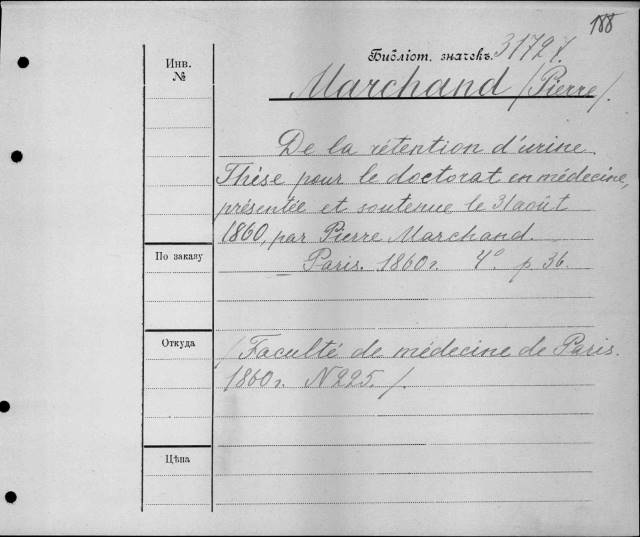 188
Инв.
№
Библіот. значекъ. 31727.
Marchand /Pierre/.
De la rétention d'urine.
Thèse pour le doctorat en médecine,
présentée et soutenue le 31 août
1860, par Pierre Marchand.
По заказу
Paris. 1860г. 4° p. 36.
Откуда
/Faculté de médecine de Paris.
1860г. N225./.
Цѣна